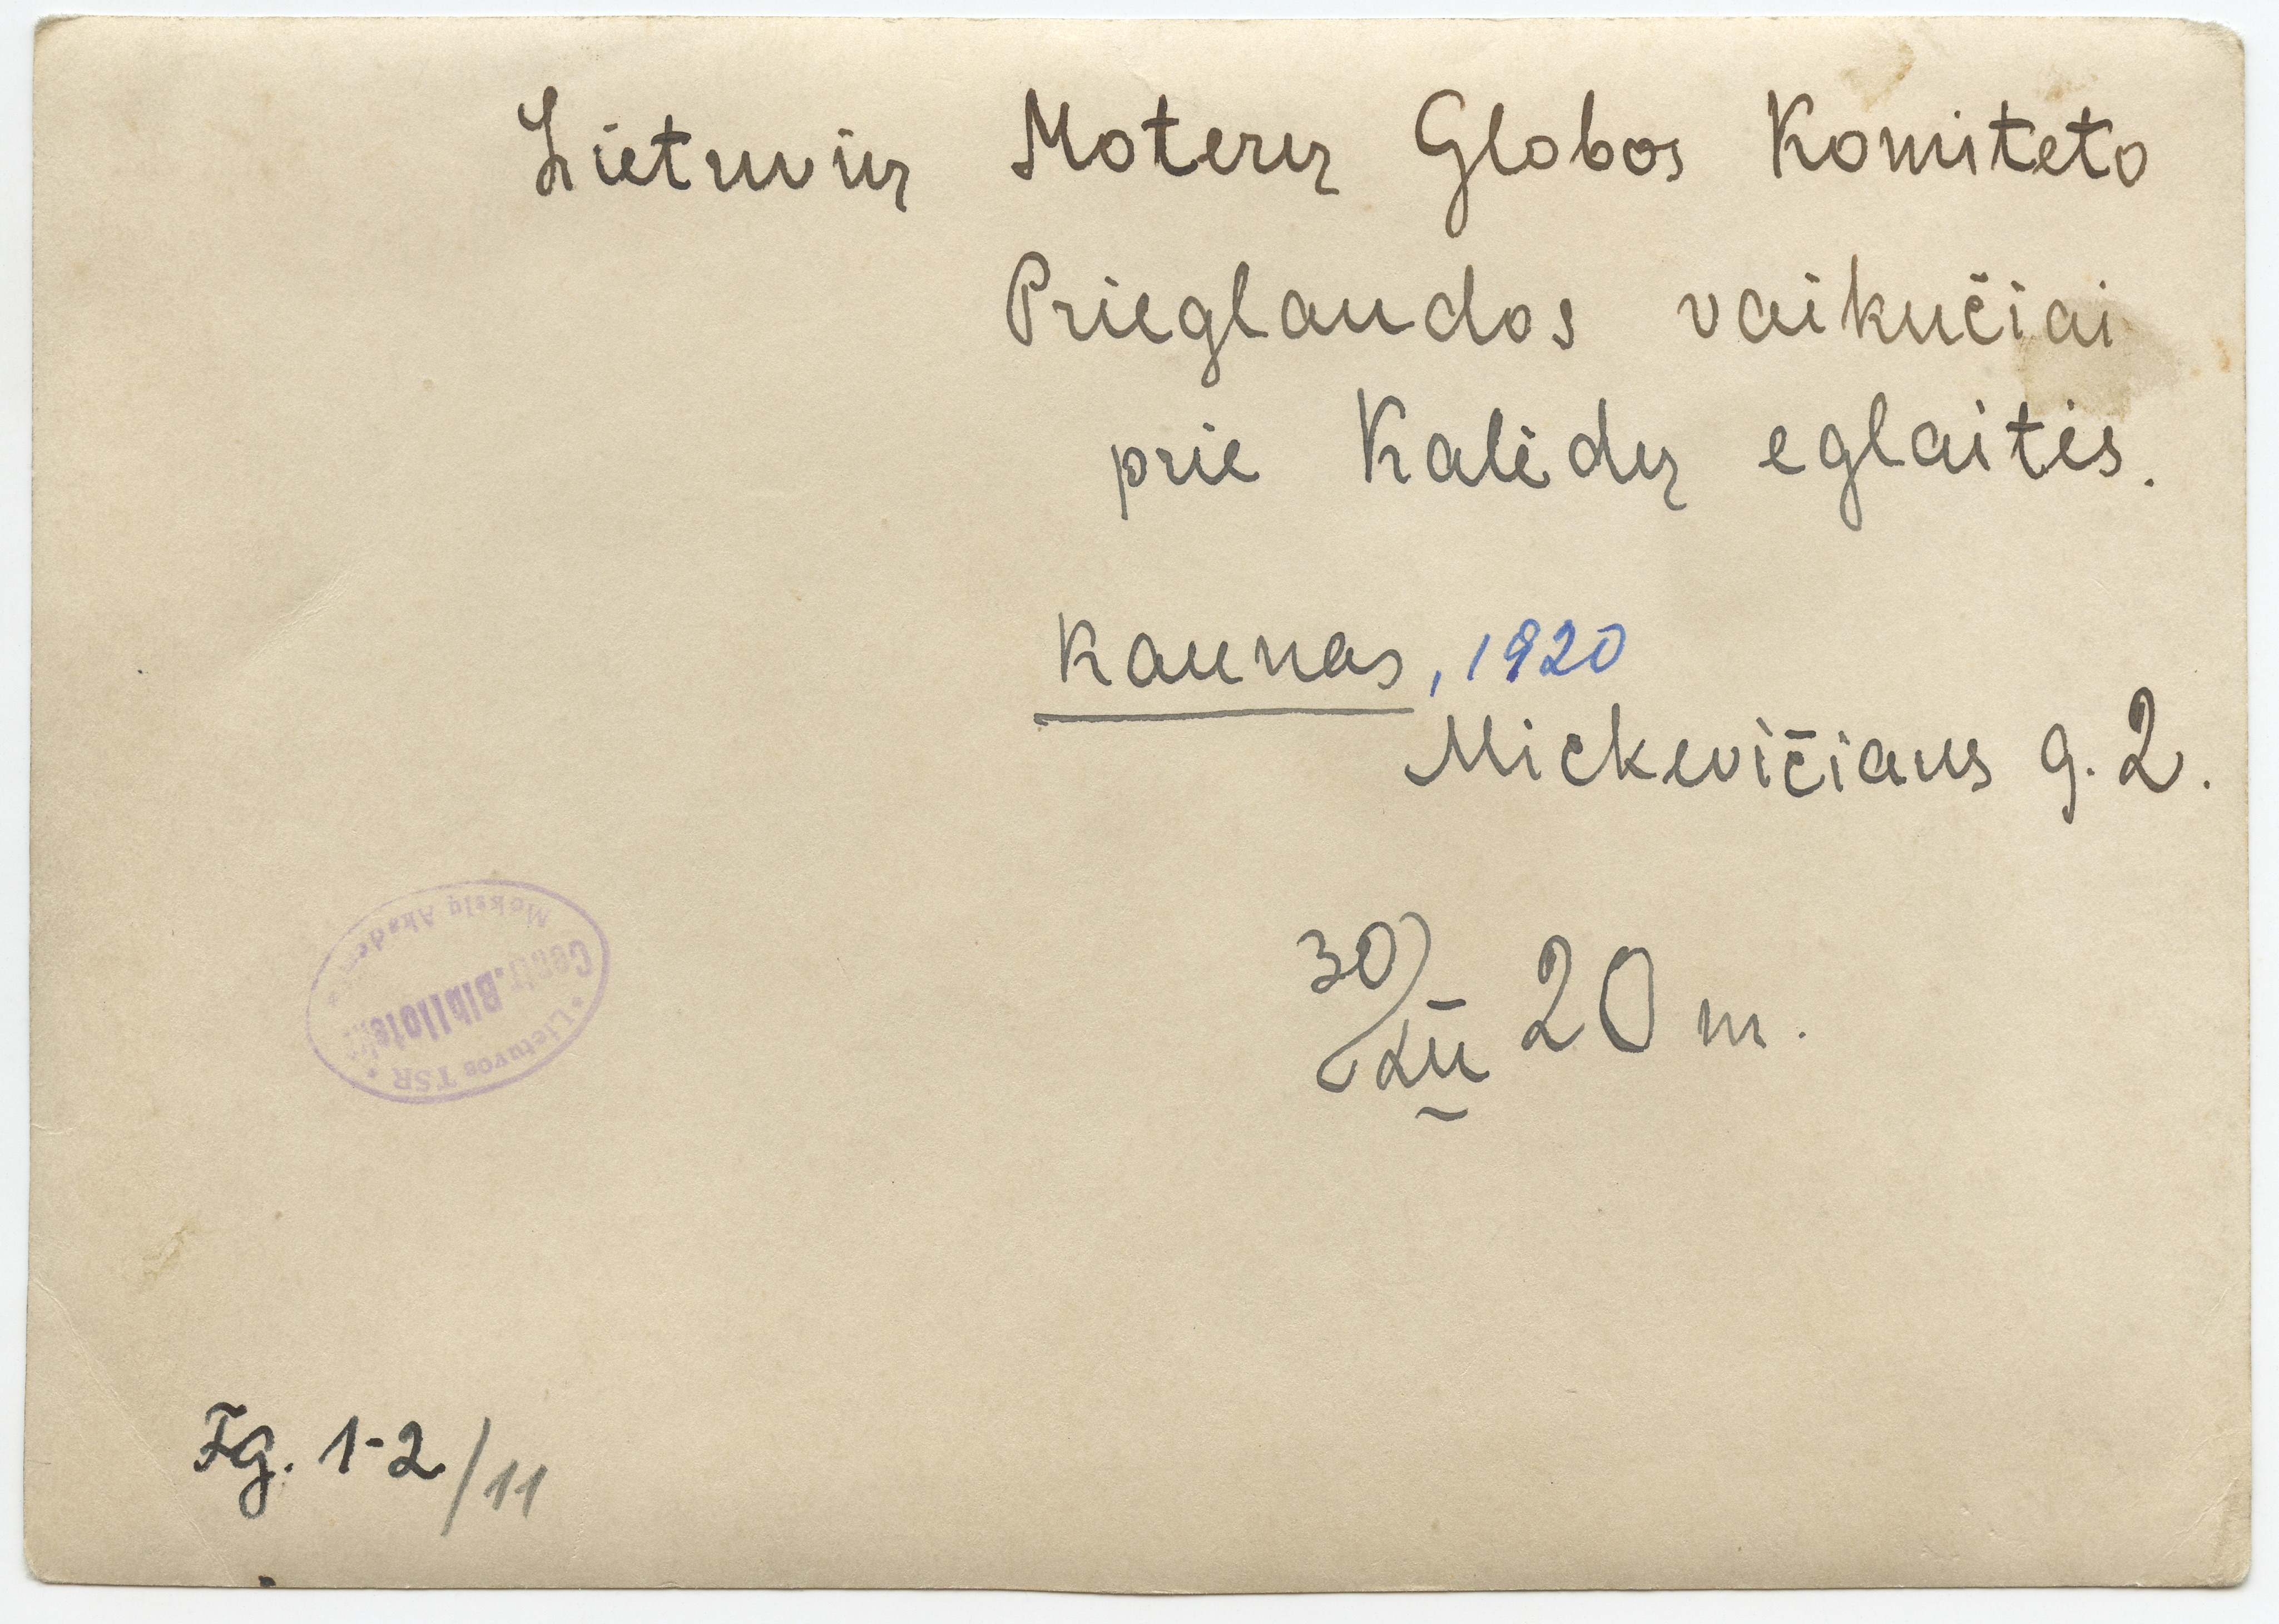 Lietuvių Moterų Globos Komiteto
Prieglaudos vaikučiai
prie Kalėdų eglaitės.
Kaunas, 1920
Mickevičiaus g. 2.
30/XII 20 m.
Lietuvos TSR
Centr. Biblioteka
Mokslų Akadem
Fg. 1-2/11